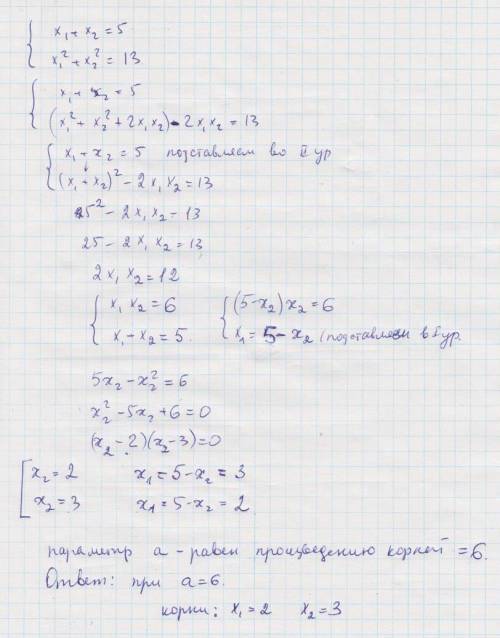 x₁ + x₂ = 5
x₁² + x₂² = 13
x₁ + x₂ = 5
(x₁² + x₂² + 2x₁x₂) - 2x₁x₂ = 13
x₁ + x₂ = 5 подставляем во II ур
(x₁ + x₂)² - 2x₁x₂ = 13
5² - 2x₁x₂ = 13
25 - 2x₁x₂ = 13
2x₁x₂ = 12
x₁x₂ = 6 (5-x₂)x₂ = 6
x₁ + x₂ = 5 x₁ = 5 - x₂ (подставляем в I ур.
5x₂ - x₂² = 6
x₂² - 5x₂ + 6 = 0
(x₂ - 2)(x₂ - 3) = 0
x₂ = 2 x₁ = 5 - x₂ = 3
x₂ = 3 x₁ = 5 - x₂ = 2
параметр а - равен произведению корней = 6.
Ответ: при а = 6.
корни: x₁ = 2 x₂ = 3